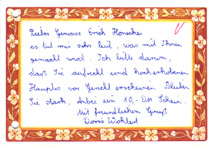 Lieber Genosse Erich Honecker
es tut mir sehr leid, was mit Ihnen
gemacht wird. Ich bitte darum,
daß Sie aufrecht und hocherhobenen
Hauptes vor Gericht erscheinen. Bleiben
Sie stark, anbei ein 10,- DM Schein.
Mit freundlichem Gruß
Doris Wohlert